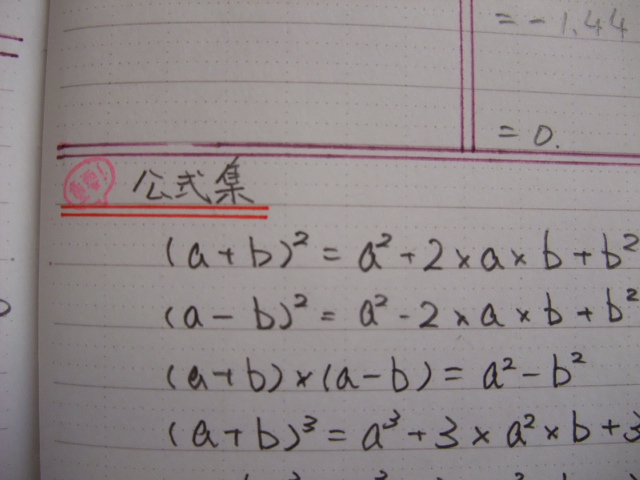 = - 1.44
= 0.
重要!
公式集
(a+b)² = a² + 2 × a × b + b²
(a - b)² = a² - 2 × a × b + b²
(a+b)×(a-b) = a² - b²
(a+b)³ = a³ + 3 × a² × b + 3